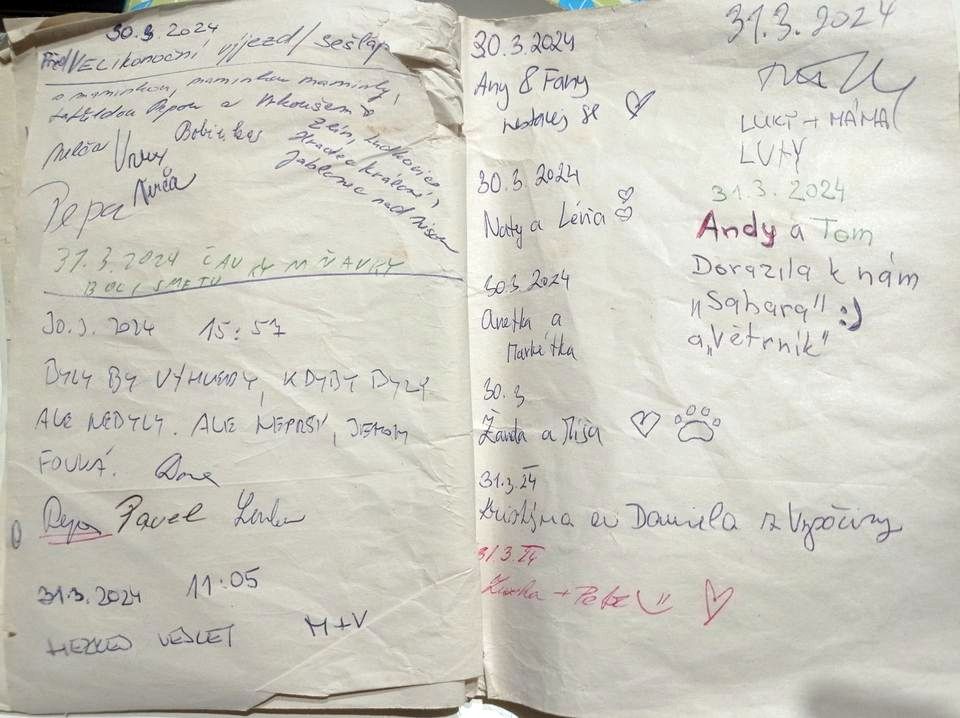 30.3.2024
Před/VELIKONOČNÍ výjezd/sešlap
s maminkou, maminkou maminky,
Pepou a
Bobi
Zlín, Ludkovice,
Hradec Králové,
Jablonec nad Nisou
Pepa
31.3.2024 ČAVKY MŇAVKY
BYLI SME TU
30.3.2024 15:57
BYLY BY VÝHLEDY, KDYBY BYLY.
ALE NEBYLY. ALE NEPRŠÍ, JENOM
FOUKÁ.
Pepa Pavel Lenka
31.3.2024 11:05
HEZKEJ VEJLET M+V
30.3.2024
Any & Fany
30.3.2024
Naty a
30.3.2024
Anetka a
Markétka
30.3
Žanda a Míša
31.3.24
Kristýna a Daniela z Vysočiny
31.3.24
+ Petr
31.3.2024
LUKY + MÁMA
LUTY
31.3.2024
Andy a Tom
Dorazila k nám
"Sahara" :)
a "Větrník"